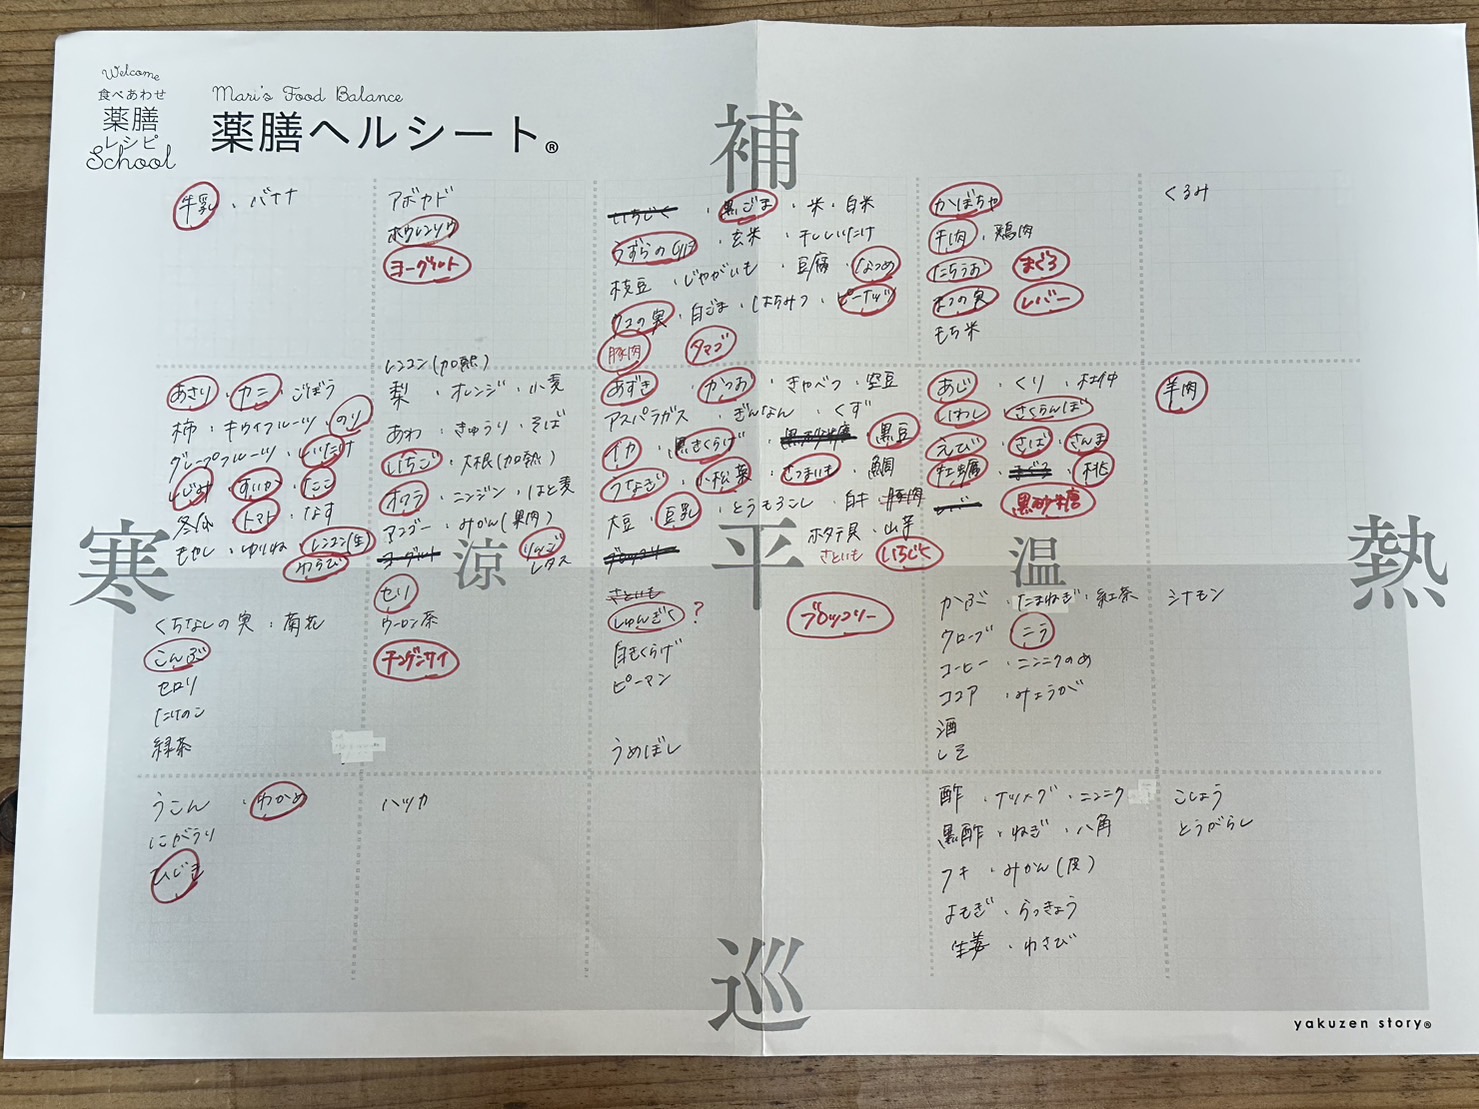 Welcome
食べあわせ
薬膳
レシピ
School
Mari's Food Balance
薬膳ヘルシート®
補
牛乳 ・ バナナ
アボカド
ホウレンソウ
ヨーグルト
いちじく ・ 黒ごま ・ 米 ・ 白米
うずらの卵 ・ 玄米 ・ 干ししいたけ
枝豆 ・ じゃがいも ・ 豆腐 ・ なつめ
クコの実 ・ 白ごま ・ はちみつ ・ ピーナッツ
豚肉 タマゴ
かぼちゃ
牛肉 ・ 鶏肉
たちうお まぐろ
まつの実 レバー
もち米
くるみ
あさり ・ カニ ・ ごぼう
柿 ・ キウイフルーツ ・ のり
グレープフルーツ ・ しいたけ
しじみ ・ すいか ・ たこ
冬瓜 ・ トマト ・ なす
もやし ・ ゆりね ・ レンコン(生)
わらび
レンコン(加熱)
梨 ・ オレンジ ・ 小麦
あわ ・ きゅうり ・ そば
いちご ・ 大根(加熱)
オクラ ・ ニンジン ・ はと麦
マンゴー ・ みかん(果肉)
ヨーグルト リンゴ
レタス
あずき ・ かつお ・ きゃべつ ・ 空豆
アスパラガス ・ ぎんなん ・ くず
イカ ・ 黒きくらげ ・ 黒砂糖 ・ 黒豆
うなぎ ・ 小松菜 ・ さつまいも ・ 鯛
大豆 ・ 豆乳 ・ とうもろこし ・ 白キ ・ 豚肉
ホタテ貝 ・ 山芋
ブロッコリー さといも いちじく
あじ ・ くり ・ 杜仲
いわし ・ さくらんぼ
えび ・ さば ・ さんま
牡蛎 ・ まぐろ ・ 桃
黒砂糖
羊肉
寒
涼
平
温
熱
くちなしの実 ・ 菊花
こんぶ
セロリ
たけのこ
緑茶
セリ
ウーロン茶
チンゲンサイ
さといも
しゅんぎく ?
白きくらげ
ピーマン
うめぼし
ブロッコリー
かぶ ・ たまねぎ ・ 紅茶
クローブ ・ ニラ
コーヒー ・ ニンニクのめ
ココア ・ みょうが
酒
しそ
シナモン
うこん ・ わかめ
にがうり
ひじき
ハッカ
酢 ・ ナツメグ ・ ニンニク
黒酢 ・ ねぎ ・ 八角
フキ ・ みかん(皮)
よもぎ ・ らっきょう
生姜 ・ わさび
こしょう
とうがらし
巡
yakuzen story®